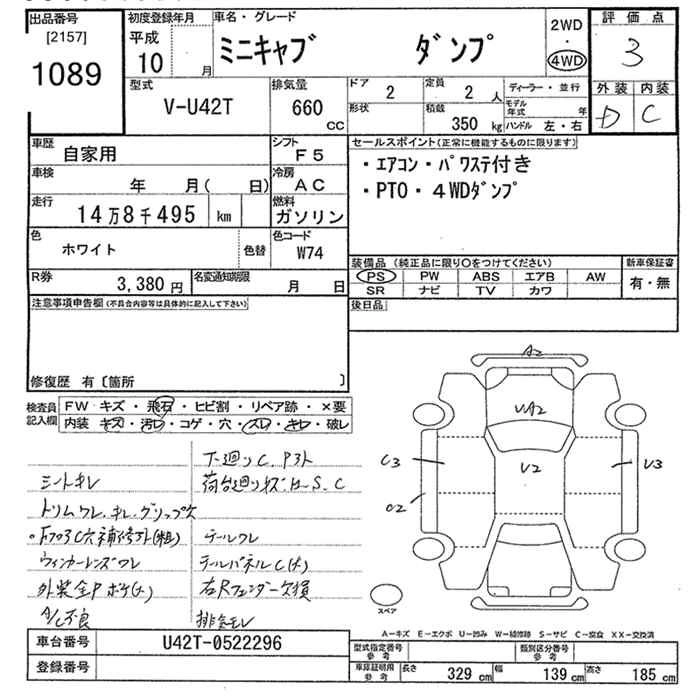 出品番号
[2157]
1089
初度登録年月
平成
10 月
車名・グレード
ミニキャブ ダンプ
2WD
・
4WD
評価点
3
外装 内装
D C
型式
V-U42T
排気量
660
CC
ドア
2
定員
2 人
ディーラー・並行
形状
積載
350 kg
モデル年式 年
ハンドル 左・右
車歴
自家用
シフト
F5
車検
年 月( 日)
冷房
AC
走行
14万8千495 km
燃料
ガソリン
色
ホワイト
色替
色コード
W74
R券
3,380 円
名変通知期限
月 日
セールスポイント(正常に機能するものに限ります)
・エアコン・パワステ付き
・PTO・4WDダンプ
装備品(純正品に限り○をつけてください)
PS PW ABS エアB AW
SR ナビ TV カワ
新車保証書
有・無
後日品
注意事項申告欄(不具合内容等は具体的に記入して下さい)
修復歴 有〔箇所 〕
検査員
記入欄
FW キズ・飛石・ヒビ割・リペア跡・×要
内装 キズ・汚レ・コゲ・穴・スレ・キレ・破レ
下廻りC、Pヌト
シートキレ
荷台廻りキズ、ヨ-S、C
トリムワレ、キレ、グリップ欠
・フロアC穴補修跡(粗)
テールワレ
ウィンカーレンズワレ
テールパネルC(大)
外装全Pボケ(大)
右Rフェンダー欠損
A/C不良
排気モレ
A2
UA2
C3
U2
U3
C2
スペア
A-キズ E-エクボ U-凹み W-補修跡 S-サビ C-腐食 XX-交換済
車台番号
U42T-0522296
登録番号
型式指定番号
参考
類別区分番号
参考
車庫証明用
参考
長さ 329 cm 幅 139 cm 高さ 185 cm